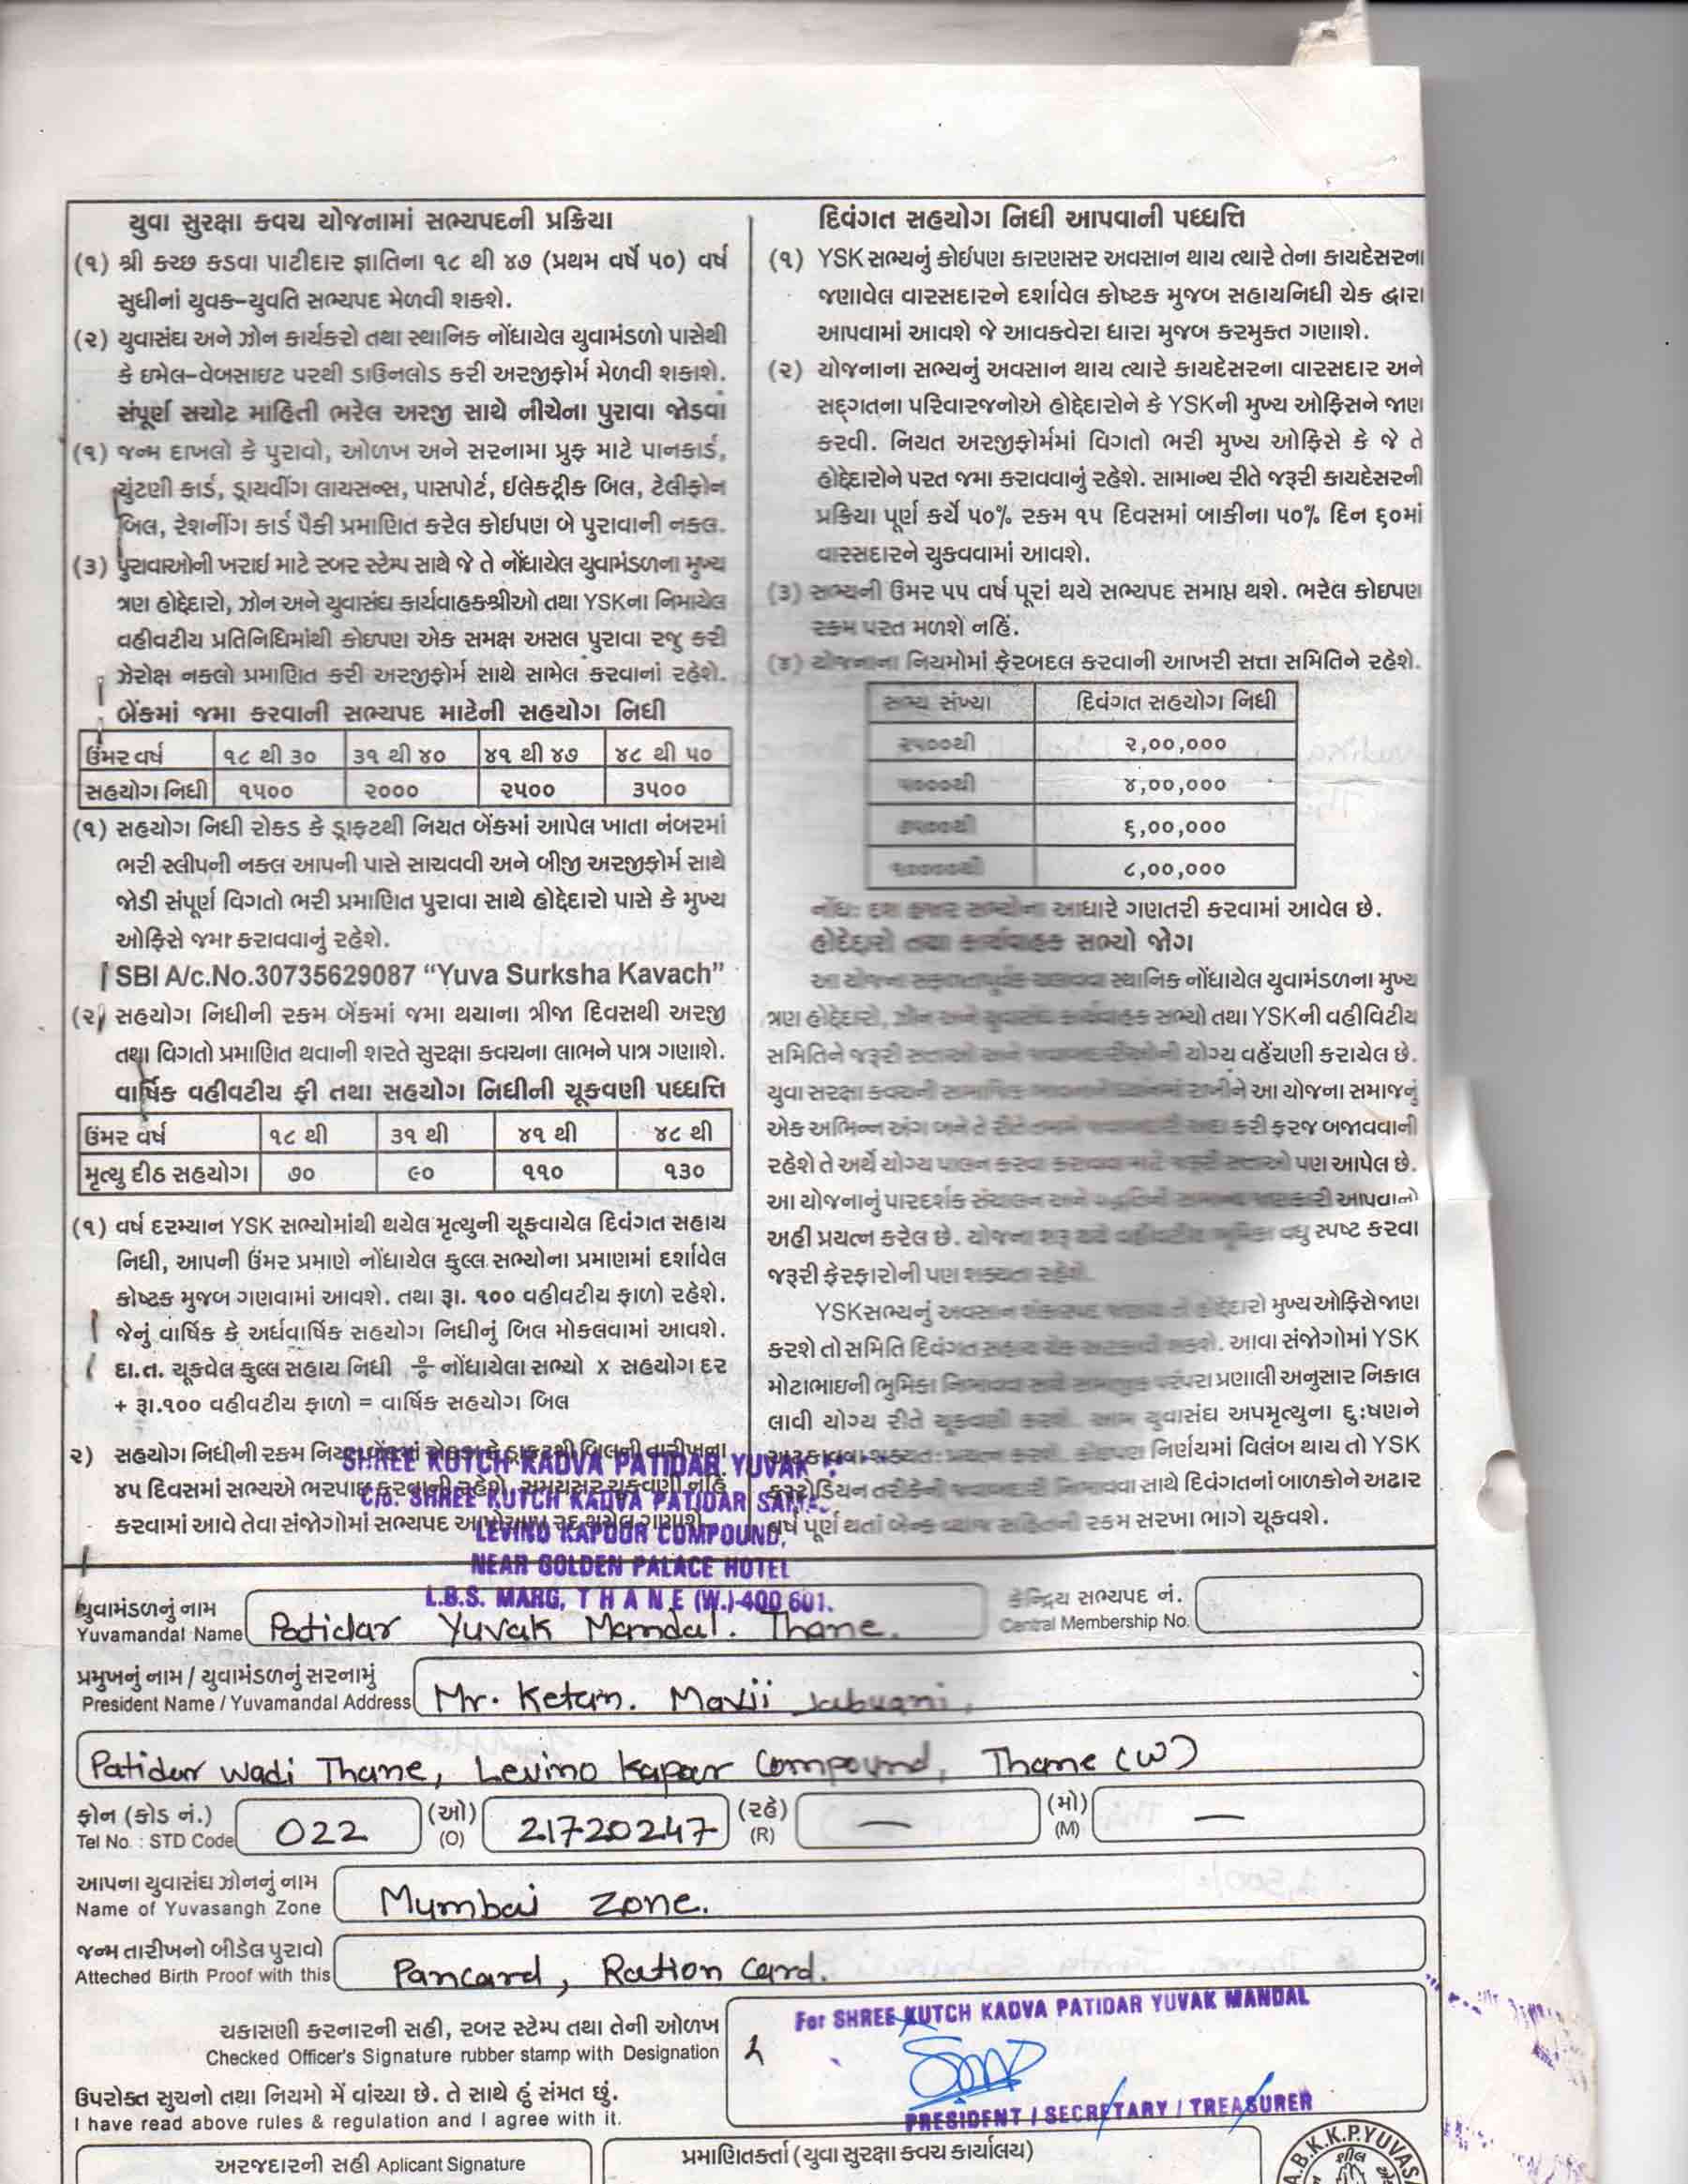 યુવા સુરક્ષા કવચ યોજનામાં સભ્યપદની પ્રક્રિયા
(૧) શ્રી કચ્છ કડવા પાટીદાર જ્ઞાતિના ૧૮ થી ૪૭ (પ્રથમ વર્ષે ૫૦) વર્ષ
સુધીનાં યુવક-યુવતિ સભ્યપદ મેળવી શકશે.
(૨) યુવાસંઘ અને ઝોન કાર્યકરો તથા સ્થાનિક નોંધાયેલ યુવામંડળો પાસેથી
કે ઇમેલ-વેબસાઇટ પરથી ડાઉનલોડ કરી અરજીફોર્મ મેળવી શકાશે.
સંપૂર્ણ સચોટ માહિતી ભરેલ અરજી સાથે નીચેના પુરાવા જોડવા
(૧) જન્મ દાખલો કે પુરાવો, ઓળખ અને સરનામા પ્રુફ માટે પાનકાર્ડ,
ચુંટણી કાર્ડ, ડ્રાયવીંગ લાયસન્સ, પાસપોર્ટ, ઈલેકટ્રીક બિલ, ટેલીફોન
બિલ, રેશનીંગ કાર્ડ પૈકી પ્રમાણિત કરેલ કોઈપણ બે પુરાવાની નકલ.
(૩) પુરાવાઓની ખરાઇ માટે રબર સ્ટેમ્પ સાથે જે તે નોંધાયેલ યુવામંડળના મુખ્ય
ત્રણ હોદ્દેદારો, ઝોન અને યુવાસંઘ કાર્યવાહકશ્રીઓ તથા YSKના નિમાયેલ
વહીવટીય પ્રતિનિધિમાંથી કોઇપણ એક સમક્ષ અસલ પુરાવા રજુ કરી
ઝેરોક્ષ નકલો પ્રમાણિત કરી અરજીફોર્મ સાથે સામેલ કરવાનાં રહેશે.
બેંકમાં જમા કરવાની સભ્યપદ માટેની સહયોગ નિધી
ઉંમર વર્ષ ૧૮ થી ૩૦ ૩૧ થી ૪૦ ૪૧ થી ૪૭ ૪૮ થી ૫૦
સહયોગ નિધી ૧૫૦૦ ૨૦૦૦ ૨૫૦૦ ૩૫૦૦
(૧) સહયોગ નિધી રોકડ કે ડ્રાફટથી નિયત બેંકમાં આપેલ ખાતા નંબરમાં
ભરી સ્લીપની નકલ આપની પાસે સાચવવી અને બીજી અરજીફોર્મ સાથે
જોડી સંપૂર્ણ વિગતો ભરી પ્રમાણિત પુરાવા સાથે હોદ્દેદારો પાસે કે મુખ્ય
ઓફિસે જમા કરાવવાનું રહેશે.
SBI A/c.No.30735629087 “Yuva Surksha Kavach”
(૨) સહયોગ નિધીની રકમ બેંકમાં જમા થયાના ત્રીજા દિવસથી અરજી
તથા વિગતો પ્રમાણિત થવાની શરતે સુરક્ષા કવચના લાભને પાત્ર ગણાશે.
વાર્ષિક વહીવટીય ફી તથા સહયોગ નિધીની ચૂકવણી પધ્ધતિ
ઉંમર વર્ષ ૧૮ થી ૩૧ થી ૪૧ થી ૪૮ થી
મૃત્યુ દીઠ સહયોગ ૭૦ ૯૦ ૧૧૦ ૧૩૦
(૧) વર્ષ દરમ્યાન YSK સભ્યોમાંથી થયેલ મૃત્યુની ચૂકવાયેલ દિવંગત સહાય
નિધી, આપની ઉંમર પ્રમાણે નોંધાયેલ કુલ્લ સભ્યોના પ્રમાણમાં દર્શાવેલ
કોષ્ટક મુજબ ગણવામાં આવશે. તથા રૂા. ૧૦૦ વહીવટીય ફાળો રહેશે.
જેનું વાર્ષિક કે અર્ધવાર્ષિક સહયોગ નિધીનું બિલ મોકલવામાં આવશે.
દા.ત. ચૂકવેલ કુલ્લ સહાય નિધી ÷ નોંધાયેલા સભ્યો x સહયોગ દર
+ રૂા.૧૦૦ વહીવટીય ફાળો = વાર્ષિક સહયોગ બિલ
૨) સહયોગ નિધીની રકમ નિયત બેંકમાં રોકડ કે ડ્રાફટથી બિલની તારીખના
૪૫ દિવસમાં સભ્યએ ભરપાઇ કરવાની રહેશે. સમયસર ચૂકવણી નહિ
કરવામાં આવે તેવા સંજોગોમાં સભ્યપદ આપોઆપ રદ થયેલ ગણાશે.
દિવંગત સહયોગ નિધી આપવાની પધ્ધતિ
(૧) YSK સભ્યનું કોઈપણ કારણસર અવસાન થાય ત્યારે તેના કાયદેસરના
જણાવેલ વારસદારને દર્શાવેલ કોષ્ટક મુજબ સહાયનિધી ચેક દ્વારા
આપવામાં આવશે જે આવકવેરા ધારા મુજબ કરમુક્ત ગણાશે.
(૨) યોજનાના સભ્યનું અવસાન થાય ત્યારે કાયદેસરના વારસદાર અને
સદ્ગતના પરિવારજનોએ હોદ્દેદારોને કે YSKની મુખ્ય ઓફિસને જાણ
કરવી. નિયત અરજીફોર્મમાં વિગતો ભરી મુખ્ય ઓફિસે કે જે તે
હોદ્દેદારોને પરત જમા કરાવવાનું રહેશે. સામાન્ય રીતે જરૂરી કાયદેસરની
પ્રક્રિયા પૂર્ણ કર્યે ૫૦% રકમ ૧૫ દિવસમાં બાકીના ૫૦% દિન ૬૦માં
વારસદારને ચુકવવામાં આવશે.
(૩) સભ્યની ઉમર ૫૫ વર્ષ પૂરાં થયે સભ્યપદ સમાપ્ત થશે. ભરેલ કોઇપણ
રકમ પરત મળશે નહિં.
(૪) યોજનાના નિયમોમાં ફેરબદલ કરવાની આખરી સત્તા સમિતિને રહેશે.
સભ્ય સંખ્યા દિવંગત સહયોગ નિધી
૨૫૦૦થી ૨,૦૦,૦૦૦
૫૦૦૦થી ૪,૦૦,૦૦૦
૭૫૦૦થી ૬,૦૦,૦૦૦
૧૦૦૦૦થી ૮,૦૦,૦૦૦
નોંધ: દશ હજાર સભ્યોના આધારે ગણતરી કરવામાં આવેલ છે.
હોદેદારો તથા કાર્યવાહક સભ્યો જોગ
આ યોજના સફળતાપૂર્વક ચલાવવા સ્થાનિક નોંધાયેલ યુવામંડળના મુખ્ય
ત્રણ હોદ્દેદારો, ઝોન અને યુવાસંઘ કાર્યવાહક સભ્યો તથા YSKની વહીવિટીય
સમિતિને જરૂરી યોગ્ય વહેંચણી કરાયેલ છે.
યુવા સરક્ષા કવચની આ યોજના સમાજનું
એક અભિન્ન અંગ બને તે રીતે કરી ફરજ બજાવવાની
રહેશે તે અર્થે યોગ્ય પાલન પણ આપેલ છે.
આ યોજનાનું પારદર્શક સંચાલન આપવાનો
અહીં પ્રયત્ન કરેલ છે. વધુ સ્પષ્ટ કરવા
જરૂરી ફેરફારોની પણ શક્યતા રહેશે.
YSK સભ્યનું અવસાન મુખ્ય ઓફિસે જાણ
કરશે તો સમિતિ દિવંગત આવા સંજોગોમાં YSK
મોટાભાઇની ભુમિકા પરંપરા પ્રણાલી અનુસાર નિકાલ
લાવી યોગ્ય રીતે ચૂકવણી કરશે. આમ યુવાસંઘ અપમૃત્યુના દુઃષણને
અટકાવવા નિર્ણયમાં વિલંબ થાય તો YSK
કસ્ટોડિયન તરીકેની સાથે દિવંગતનાં બાળકોને અઢાર
વર્ષ પૂર્ણ થતાં રકમ સરખા ભાગે ચૂકવશે.
SHREE KUTCH KADVA PATIDAR YUVAK
C/o. SHREE KUTCH KADVA PATIDAR
LEVINO KAPOOR COMPOUND,
NEAR GOLDEN PALACE HOTEL
L.B.S. MARG, THANE (W.)-400 601.
યુવામંડળનું નામ
Yuvamandal Name Patidar Yuvak Mandal. Thane.
કેન્દ્રિય સભ્યપદ નં.
Central Membership No.
પ્રમુખનું નામ / યુવામંડળનું સરનામું
President Name / Yuvamandal Address Mr. Ketan. Mavji Jabuani,
Patidar Wadi Thane, Levino Kapoor Compound, Thane (W)
ફોન (કોડ નં.) (ઓ) (રહે) (મો)
Tel No. : STD Code 022 (O) 21720247 (R) — (M) —
આપના યુવાસંઘ ઝોનનું નામ
Name of Yuvasangh Zone Mumbai Zone.
જન્મ તારીખનો બીડેલ પુરાવો
Atteched Birth Proof with this Pancard, Ration Card.
ચકાસણી કરનારની સહી, રબર સ્ટેમ્પ તથા તેની ઓળખ
Checked Officer's Signature rubber stamp with Designation
For SHREE KUTCH KADVA PATIDAR YUVAK MANDAL
PRESIDENT / SECRETARY / TREASURER
ઉપરોક્ત સુચનો તથા નિયમો મેં વાંચ્યા છે. તે સાથે હું સંમત છું.
I have read above rules & regulation and I agree with it.
અરજદારની સહી Aplicant Signature
પ્રમાણિતકર્તા (યુવા સુરક્ષા કવચ કાર્યાલય)
A.B.K.K.P.YUVAS
શીલ